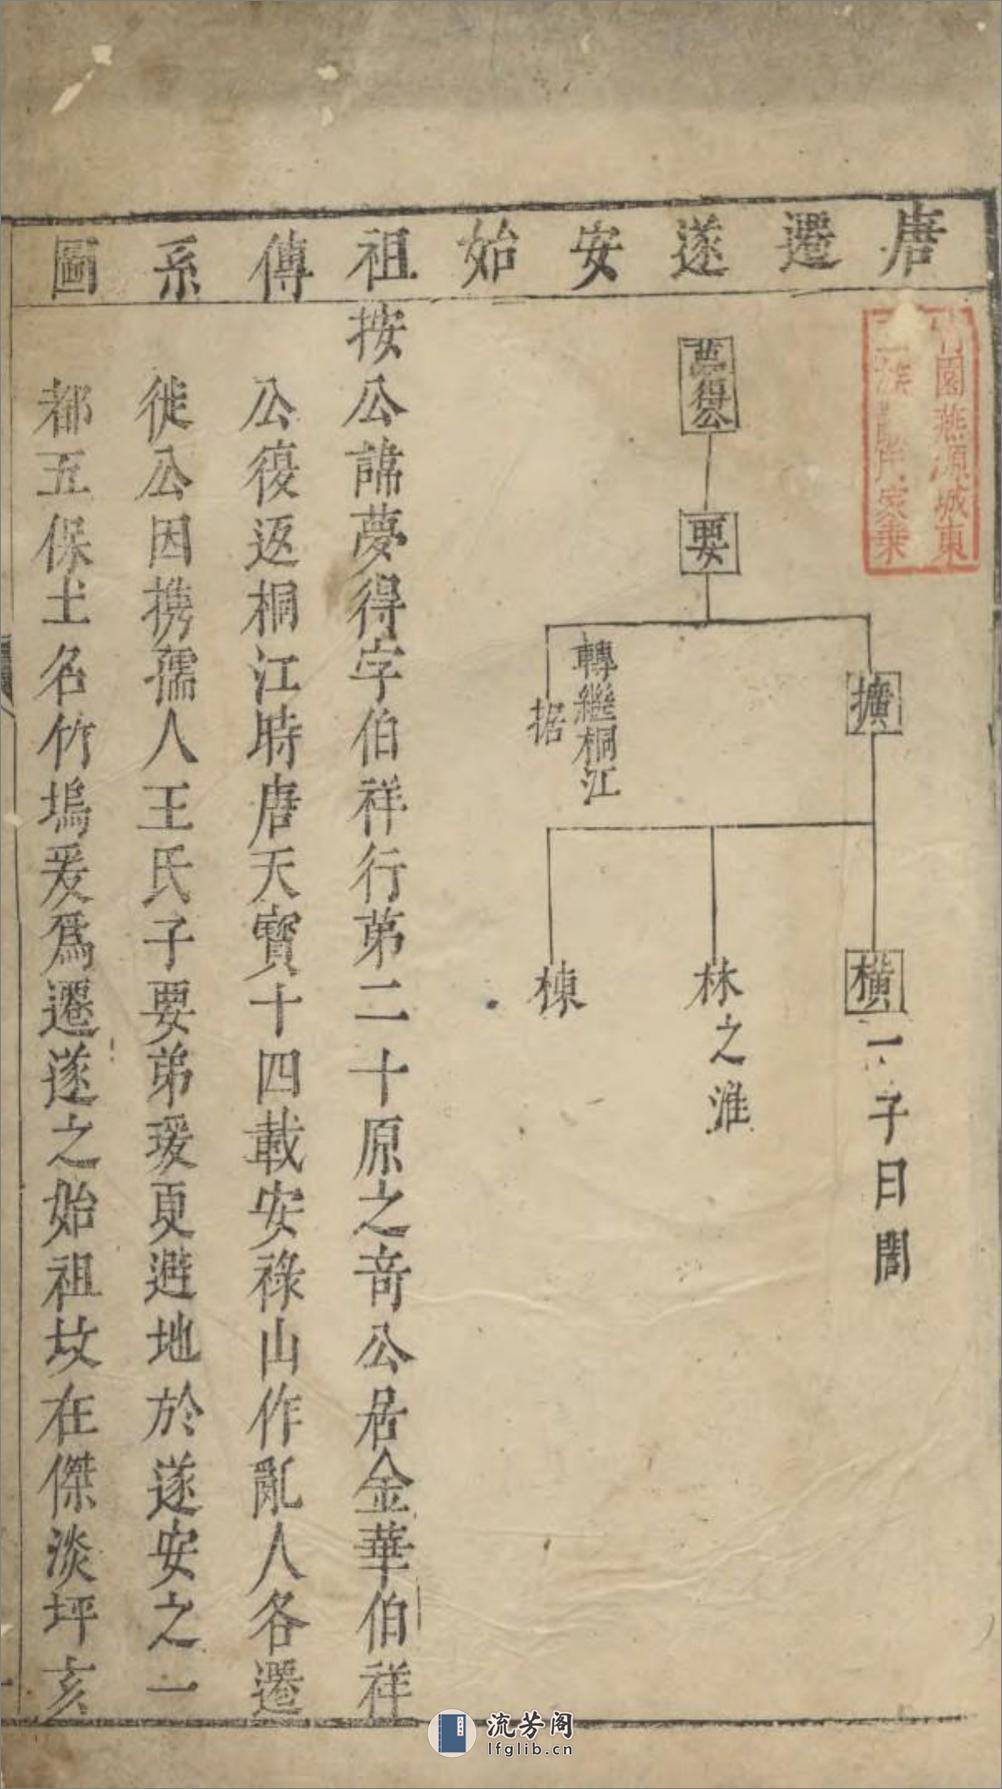 唐遷遂安始祖傳系圖
竹園燕源城東
家乗
夢得公
要
擴
轉繼桐江
据
橫一子曰誾
林之淮
棟
按公諱夢得字伯祥行苐二十原之竒公居金華伯祥
公復返桐江時唐天寳十四載安祿山作亂人各遷
徙公因携孺人王氏子要弟瑗更避地於遂安之一
都五保土名竹塢爰爲遷遂之始祖坟在傑淡坪亥
流芳阁
lfglib.cn